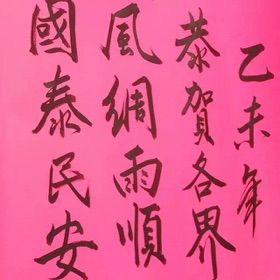 乙未年
恭賀各界
風綢雨順
國泰民安